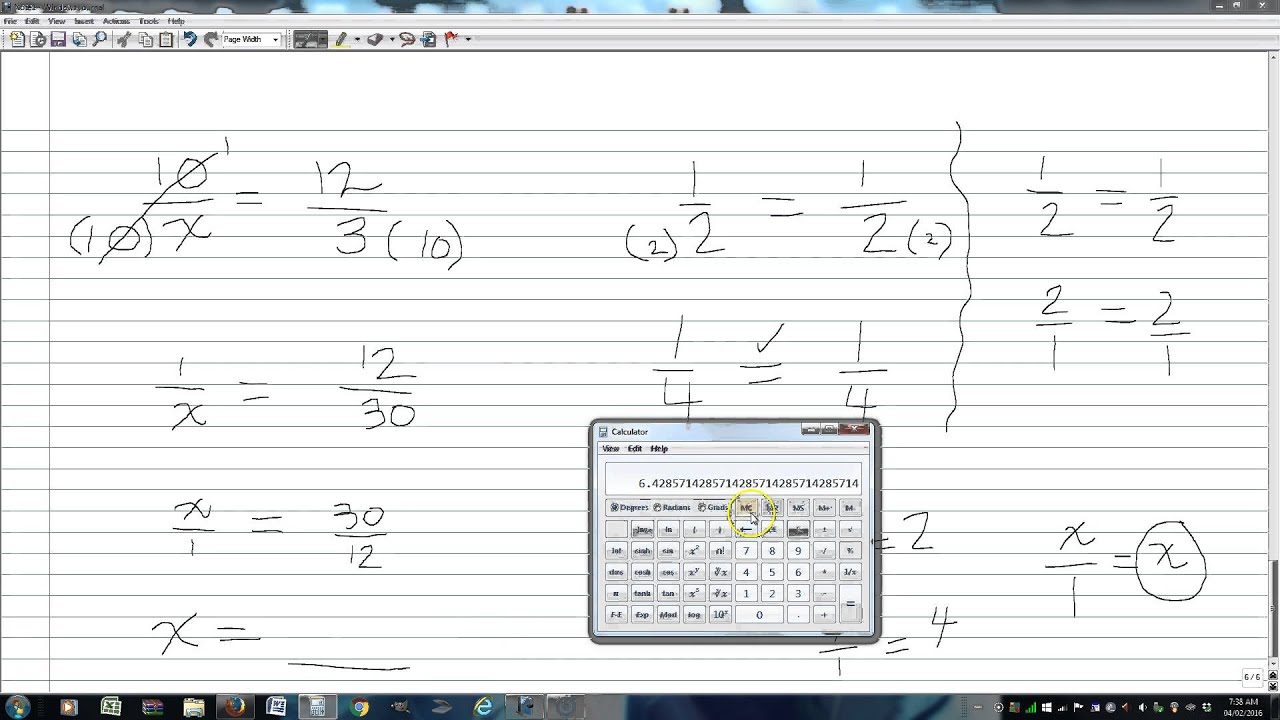 File Edit View Insert Actions Tools Help
Page Width
10 1 / (10) x = 12 / 3 (10)
1 / (2) 2 = 1 / 2 (2)
1 / 2 = 1 / 2
2 / 1 = 2 / 1
1 / x = 12 / 30
1 / 4 = 1 / 4
x / 1 = 30 / 12
x =
= 2
1 = 4
x / 1 = x
Calculator
View Edit Help
6.4285714285714285714285714285714
Degrees Radians Grads MC MR MS M+ M-
Inv ln ( ) ← CE C ± √
Int sinh sin x² n! 7 8 9 / %
dms cosh cos xʸ ʸ√x 4 5 6 * 1/x
π tanh tan x³ ³√x 1 2 3 - =
F-E Exp Mod log 10ˣ 0 . +
6/6
7:38 AM
04/02/2016